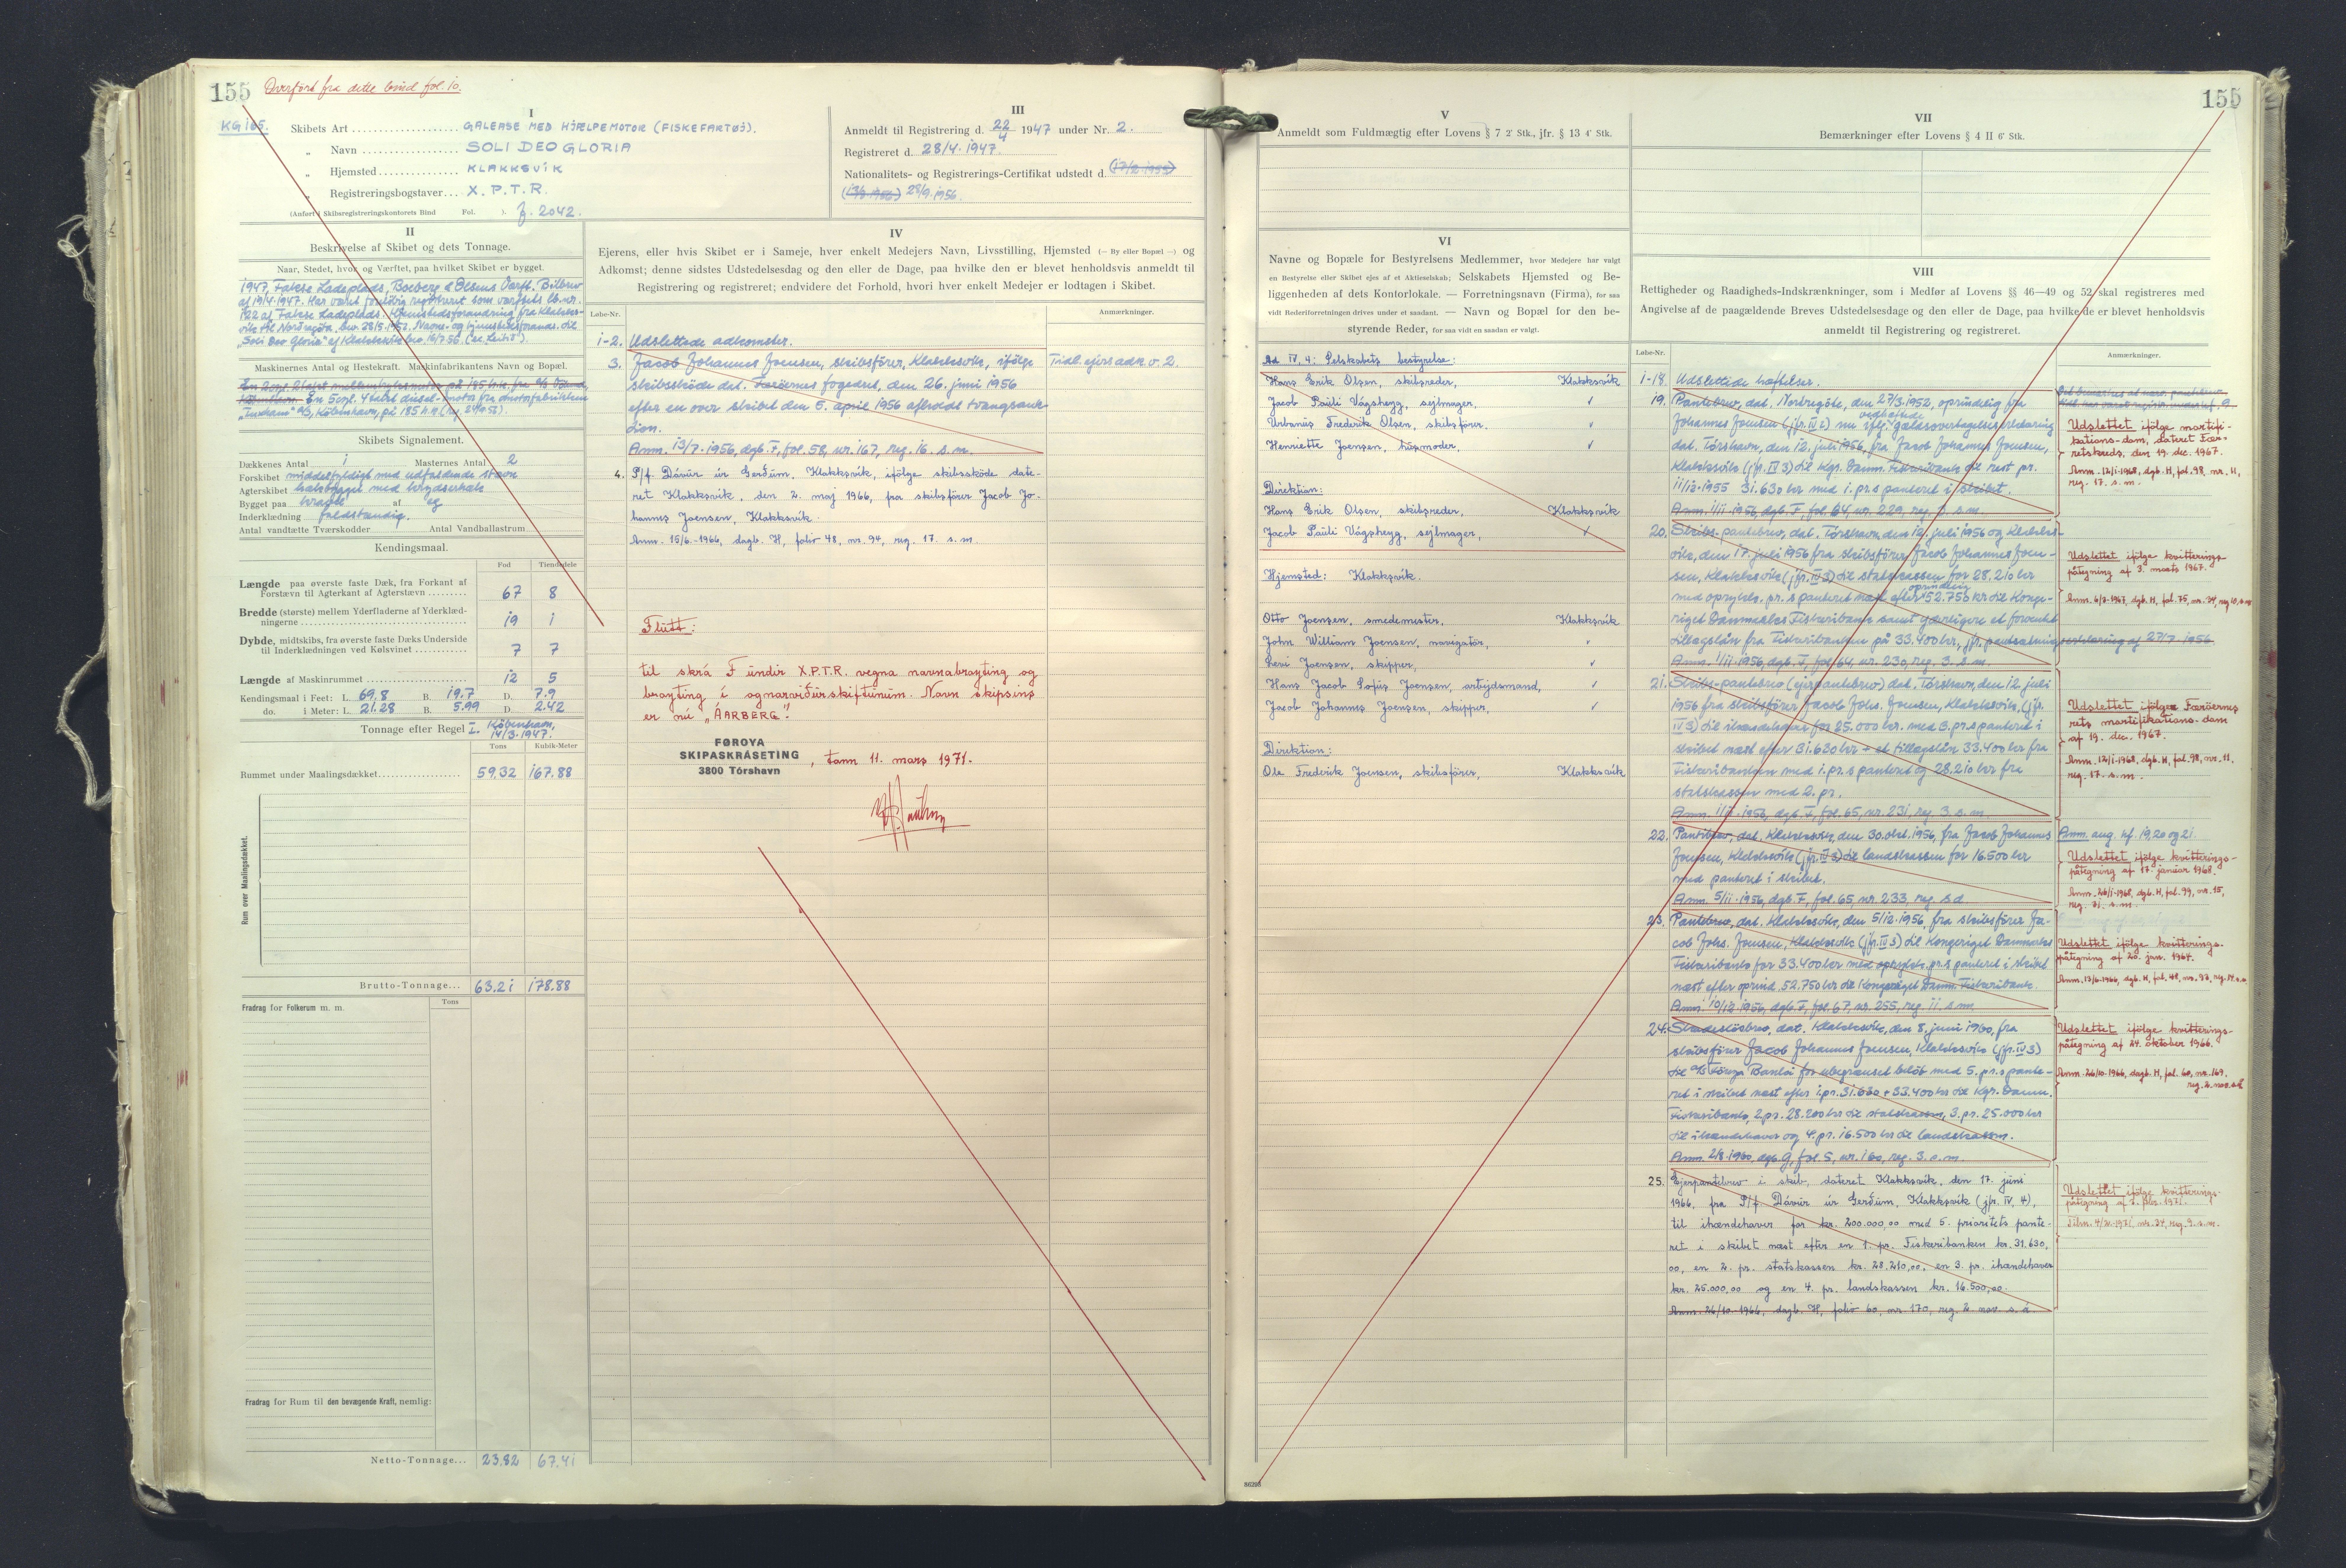 155 Overført fra dette bind fol. 10.
KG 165.
I
Skibets Art GALEASE MED HJÆLPEMOTOR (FISKEFARTØJ).
„ Navn SOLI DEO GLORIA
„ Hjemsted KLAKKSVÍK
„ Registreringsbogstaver X.P.T.R.
(Anført i Skibsregistreringskontorets Bind Fol. ). F. 2042.
III
Anmeldt til Registrering d. 22/4 1947 under Nr. 2.
Registreret d. 28/4. 1947.
Nationalitets- og Registrerings-Certifikat udstedt d.
28/9. 1956.
II
Beskrivelse af Skibet og dets Tonnage.
Naar, Stedet, hvor, og Værftet, paa hvilket Skibet er bygget.
1947, Fakse Ladeplads, Boeberg & Olsens Værft. Bilbrev
af 19/4 1947. Har været foreløbig registreret som værftets lb. nr.
122 af Fakse Ladeplads. Hjemstedsforandring fra Klakks-
vik til Norðragöta,
„Soli Deo Gloria" af Klakksvik
Maskinernes Antal og Hestekraft. Maskinfabrikantens Navn og Bopæl.
En 5 cyl. 4 takt diesel-motor fra motorfabrikken
København, på 185 h.k.
Skibets Signalement.
Dækkenes Antal 1 Masternes Antal 2
Forskibet middelfyldigt med udfaldende stævn
Agterskibet halvbygget med krydserhæk
Bygget paa kravel af eg
Inderklædning fuldstændig.
Antal vandtætte Tværskodder Antal Vandballastrum
Kendingsmaal.
Fod Tiendedele
Længde paa øverste faste Dæk, fra Forkant af
Forstævn til Agterkant af Agterstævn 67 8
Bredde (største) mellem Yderfladerne af Yderklæd-
ningerne 19 1
Dybde, midtskibs, fra øverste faste Dæks Underside
til Inderklædningen ved Kølsvinet 7 7
Længde af Maskinrummet 12 5
Kendingsmaal i Feet: L. 69.8 B. 19.7 D. 7.9
do. i Meter: L. 21.28 B. 5.99 D. 2.42
Tonnage efter Regel I. København, 14/3. 1947.
Tons Kubik-Meter
Rummet under Maalingsdækket 59.32 167.88
Rum over Maalingsdækket.
Brutto-Tonnage 63.21 178.88
Fradrag for Folkerum m. m. Tons
Fradrag for Rum til den bevægende Kraft, nemlig:
Netto-Tonnage 23.82 67.41
IV
Ejerens, eller hvis Skibet er i Sameje, hver enkelt Medejers Navn, Livsstilling, Hjemsted (— By eller Bopæl —) og
Adkomst; denne sidstes Udstedelsesdag og den eller de Dage, paa hvilke den er blevet henholdsvis anmeldt til
Registrering og registreret; endvidere det Forhold, hvori hver enkelt Medejer er lodtagen i Skibet.
Løbe-Nr. Anmærkninger.
1-2. Udslettede adkomster.
3. Jacob Johannes Joensen, skibsfører, Klakksvík, ifølge Tidl. ejers adk. v. 2.
skibsskøde dat. Færöernes fogedret, den 26. juni 1956
efter en over skibet den 5. april 1956 afholdt tvangsauk-
tion.
Anm. 13/7. 1956, dgb. F, fol. 58, nr. 167, reg. 16. s.m.
4. P/f. Dávur úr Gerðum, Klakksvík, ifölge skibsskøde date-
ret Klakksvík, den 2. maj 1966, fra skibsfører Jacob Jo-
hannes Joensen, Klakksvík.
Anm. 15/6.-1966, dagb. H, folio 48, nr. 94, reg. 17. s. m.
Flutt:
til skrá F undir X.P.T.R. vegna navnabroyting og
broyting í ognarviðurskiftunum. Navn skipsins
er nú „ÁARBERG".
FØROYA
SKIPASKRÁSETING
3800 Tórshavn
, tann 11. mars 1971.
155
V
Anmeldt som Fuldmægtig efter Lovens § 7 2' Stk., jfr. § 13 4' Stk.
VI
Navne og Bopæle for Bestyrelsens Medlemmer, hvor Medejere har valgt
en Bestyrelse eller Skibet ejes af et Aktieselskab; Selskabets Hjemsted og Be-
liggenheden af dets Kontorlokale. — Forretningsnavn (Firma), for saa
vidt Rederiforretningen drives under et saadant. — Navn og Bopæl for den be-
styrende Reder, for saa vidt en saadan er valgt.
Ad IV, 4: Selskabets bestyrelse:
Hans Erik Olsen, skibsreder, Klakksvík
Jacob Páuli Vágsheyg, sejlmager, ✓
Urbanus Frederik Olsen, skibsförer. ✓
Henriette Joensen, húsmoder, ✓
Direktion:
Hans Erik Olsen, skibsreder, Klakksvík
Jacob Páuli Vágsheyg, sejlmager, ✓
Hjemsted: Klakksvík.
Otto Joensen, smedemester, Klakksvík
John William Joensen, navigatør, ✓
Levi Joensen, skipper, ✓
Hans Jacob Sofus Joensen, arbejdsmand, ✓
Jacob Johannes Joensen, skipper, ✓
Direktion:
Ole Frederik Joensen, skibsfører, Klakksvík
VII
Bemærkninger efter Lovens § 4 II 6' Stk.
VIII
Rettigheder og Raadigheds-Indskrænkninger, som i Medfør af Lovens §§ 46—49 og 52 skal registreres med
Angivelse af de paagældende Breves Udstedelsesdage og den eller de Dage, paa hvilke de er blevet henholdsvis
anmeldt til Registrering og registreret.
Løbe-Nr. Anmærkninger.
1-18. Udslettede hæftelser.
19. Pantebrev, dat. Nordregöte, den 27/3. 1952, oprindelig fra
Johannes Joensen (jfr. IV 2) nu iflg. vedhæftede gældsovertagelseserklæring
dat. Tórshavn, den 12. juli 1956, fra Jacob Johannes Joensen,
Klakksvík (jfr. IV 3) til Kgr. Danm. Fiskeribank til rest pr.
11/12-1955 31.630 kr med 1. pr.s panteret i skibet.
Anm. 1/11-1956, dgb. F, fol. 64, nr. 229, reg. 3. s.m.
Udslettet ifølge mortifi-
kations-dom, dateret Fær-
retskreds, den 19. dec. 1967.
Anm. 12/1-1968, dgb. H, fol. 98, nr. 11,
reg. 17. s. m.
20. Skibs-pantebrev, dat. Tórshavn, den 12. juli 1956 og Klakks-
vík, den 17. juli 1956 fra skibsfører Jacob Johannes Joen-
sen, Klakksvík (jfr. IV 3) til statskassen for 28.210 kr
med oprykn. pr.s panteret næst efter oprindelig 52.750 kr til Konge-
riget Danmarks Fiskeribank samt yderligere et forventet
tillægslån fra Fiskeribanken på 33.400 kr, jfr. påtegningserklæring af 27/7-1956
Anm. 1/11-1956, dgb. F, fol. 64, nr. 230, reg. 3. s.m.
Udslettet ifølge kvitterings-
påtegning af 3. marts 1967.
21. Skibs-pantebrev (ejerpantebrev) dat. Tórshavn, den 12. juli
1956 fra skibsfører Jacob Johs. Joensen, Klakksvík (jfr.
IV 3) til ihændehaver for 25.000 kr. med 3. pr.s panteret i
skibet næst efter 31.630 kr + et tillægslån 33.400 kr fra
Fiskeribanken med 1. pr.s panteret og 28.210 kr fra
statskassen med 2. pr.
Anm. 1/11-1956, dgb. F, fol. 65, nr. 231, reg. 3. s.m.
Udslettet ifølge Færöernes
rets mortifikations-dom
af 19. dec. 1967.
Anm. 12/1-1968, dgb. H, fol. 98, nr. 11.
reg. 17. s. m.
22. Pantebrev, dat. Klakksvík, den 30. okt. 1956, fra Jacob Johannes Anm. ang. hf. 19, 20 og 21.
Joensen, Klakksvík (jfr. IV 3) til landskassen for 16.500 kr
med panteret i skibet.
Anm. 5/11-1956, dgb. F, fol. 65, nr. 233, reg. s.d.
Udslettet ifølge kvitterings-
påtegning af 17. januar 1968.
Anm. 26/1-1968, dgb. H, fol. 99, nr. 15,
reg. 31. s. m.
23. Pantebrev, dat. Klakksvík, den 5/12. 1956, fra skibsfører Ja-
cob Johs. Joensen, Klakksvík (jfr. IV 3) til Kongeriget Danmarks
Fiskeribank for 33.400 kr med oprykn. pr.s panteret i skibet
næst efter oprind. 52.750 kr til Kongeriget Danm. Fiskeribank.
Anm. 10/12-1956, dgb. F, fol. 67, nr. 255, reg. 11. s.m.
Udslettet ifølge kvitterings-
påtegning af 20. jan.
24. Skadesløsbrev, dat. Klakksvík, den 8. juni 1960, fra
skibsfører Jacob Johannes Joensen, Klakksvík (jfr. IV 3)
til A/S Föroya Banki for ubegrænset beløb med 5. pr.s pante-
ret i skibet næst efter 1. pr. 31.630 + 33.400 kr til Kgr. Danm.
Fiskeribank, 2. pr. 28.200 kr til statskassen, 3. pr. 25.000 kr
til ihændehaver og 4. pr. 16.500 kr til landskassen.
Anm. 2/8-1960, dgb. G, fol. 5, nr. 160, reg. 3. s.m.
Udslettet ifølge kvitterings-
påtegning af 24. oktober 1966.
Anm. 26/10-1966, dagb. H, fol. 60, nr. 169.
25. Ejerpantebrev i skib, dateret Klakksvík, den 17. juni
1966, fra P/f Dávur úr Gerðum, Klakksvík (jfr. IV, 4),
til ihændehaver for kr. 200.000,00 med 5. prioritets pante-
ret i skibet næst efter en 1. pr. Fiskeribanken kr. 31.630,
00, en 2. pr. statskassen kr. 28.210,00, en 3. pr. ihændehaver
kr. 25.000,00 og en 4. pr. landskassen kr. 16.500,00.
Anm. 26/10-1966, dagb. H, folio 60, nr. 170, reg. 2. nov. s. á.
Udslettet ifølge kvitterings-
påtegning af